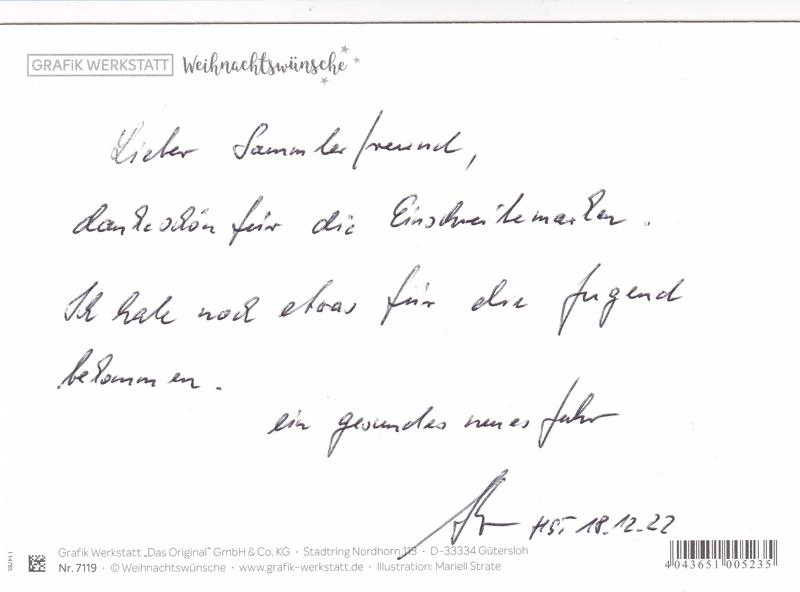 GRAFiK WERKSTATT Weihnachtswünsche
Lieber Sammlerfreund,
dankeschön für die Einschreibemarken.
Ich habe noch etwas für die Jugend
bekommen.
ein gesundes neues Jahr
HST 18.12.22
Grafik Werkstatt „Das Original" GmbH & Co. KG · Stadtring Nordhorn 113 · D-33334 Gütersloh
Nr. 7119 · © Weihnachtswünsche · www.grafik-werkstatt.de · Illustration: Mariell Strate
4 043651 005235